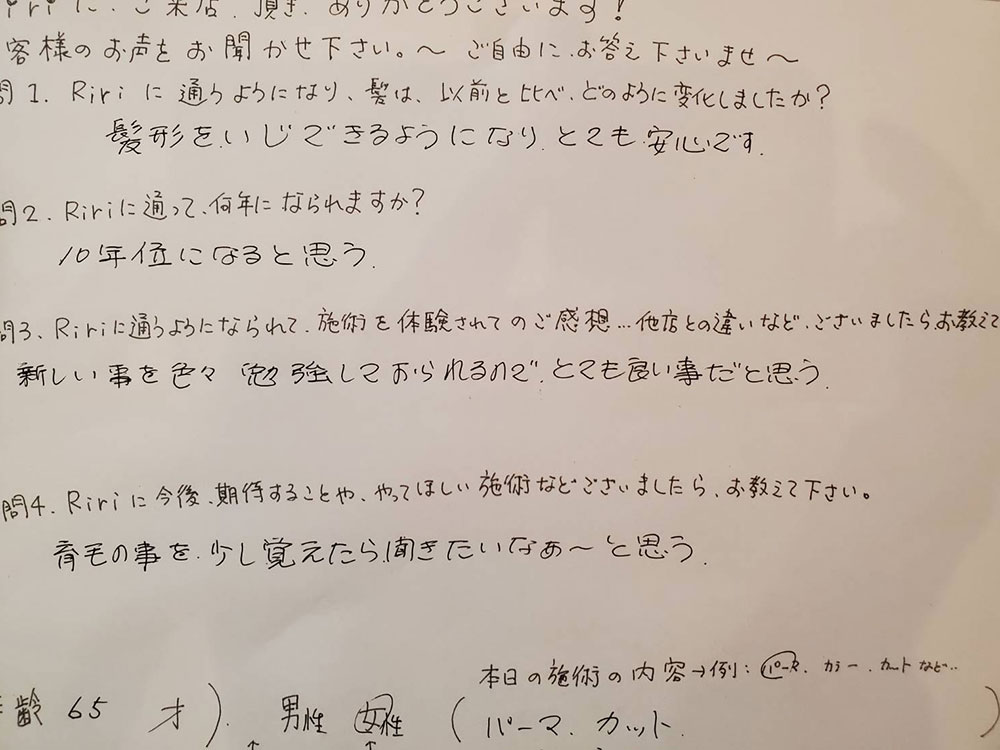 Ririに、ご来店、頂き、ありがとうございます!
客様のお声をお聞かせ下さい。〜ご自由に、お答え下さいませ〜
問1. Ririに通うようになり、髪は、以前と比べ、どのように変化しましたか?
髪形をいじできるようになり、とても安心です.
問2. Ririに通って、何年になられますか?
10年位になると思う.
問3、Ririに通うようになられて、施術を体験されてのご感想…他店との違いなど、ございましたら、お教えて
新しい事を色々勉強しておられるので、とても良い事だと思う.
問4. Ririに今後、期待することや、やってほしい施術などございましたら、お教えて下さい。
育毛の事を、少し覚えたら、聞きたいなぁ〜と思う.
本日の施術の内容→例:パーマ、カラー、カットなど…
齢 65 才). 男性 女性 (パーマ. カット )